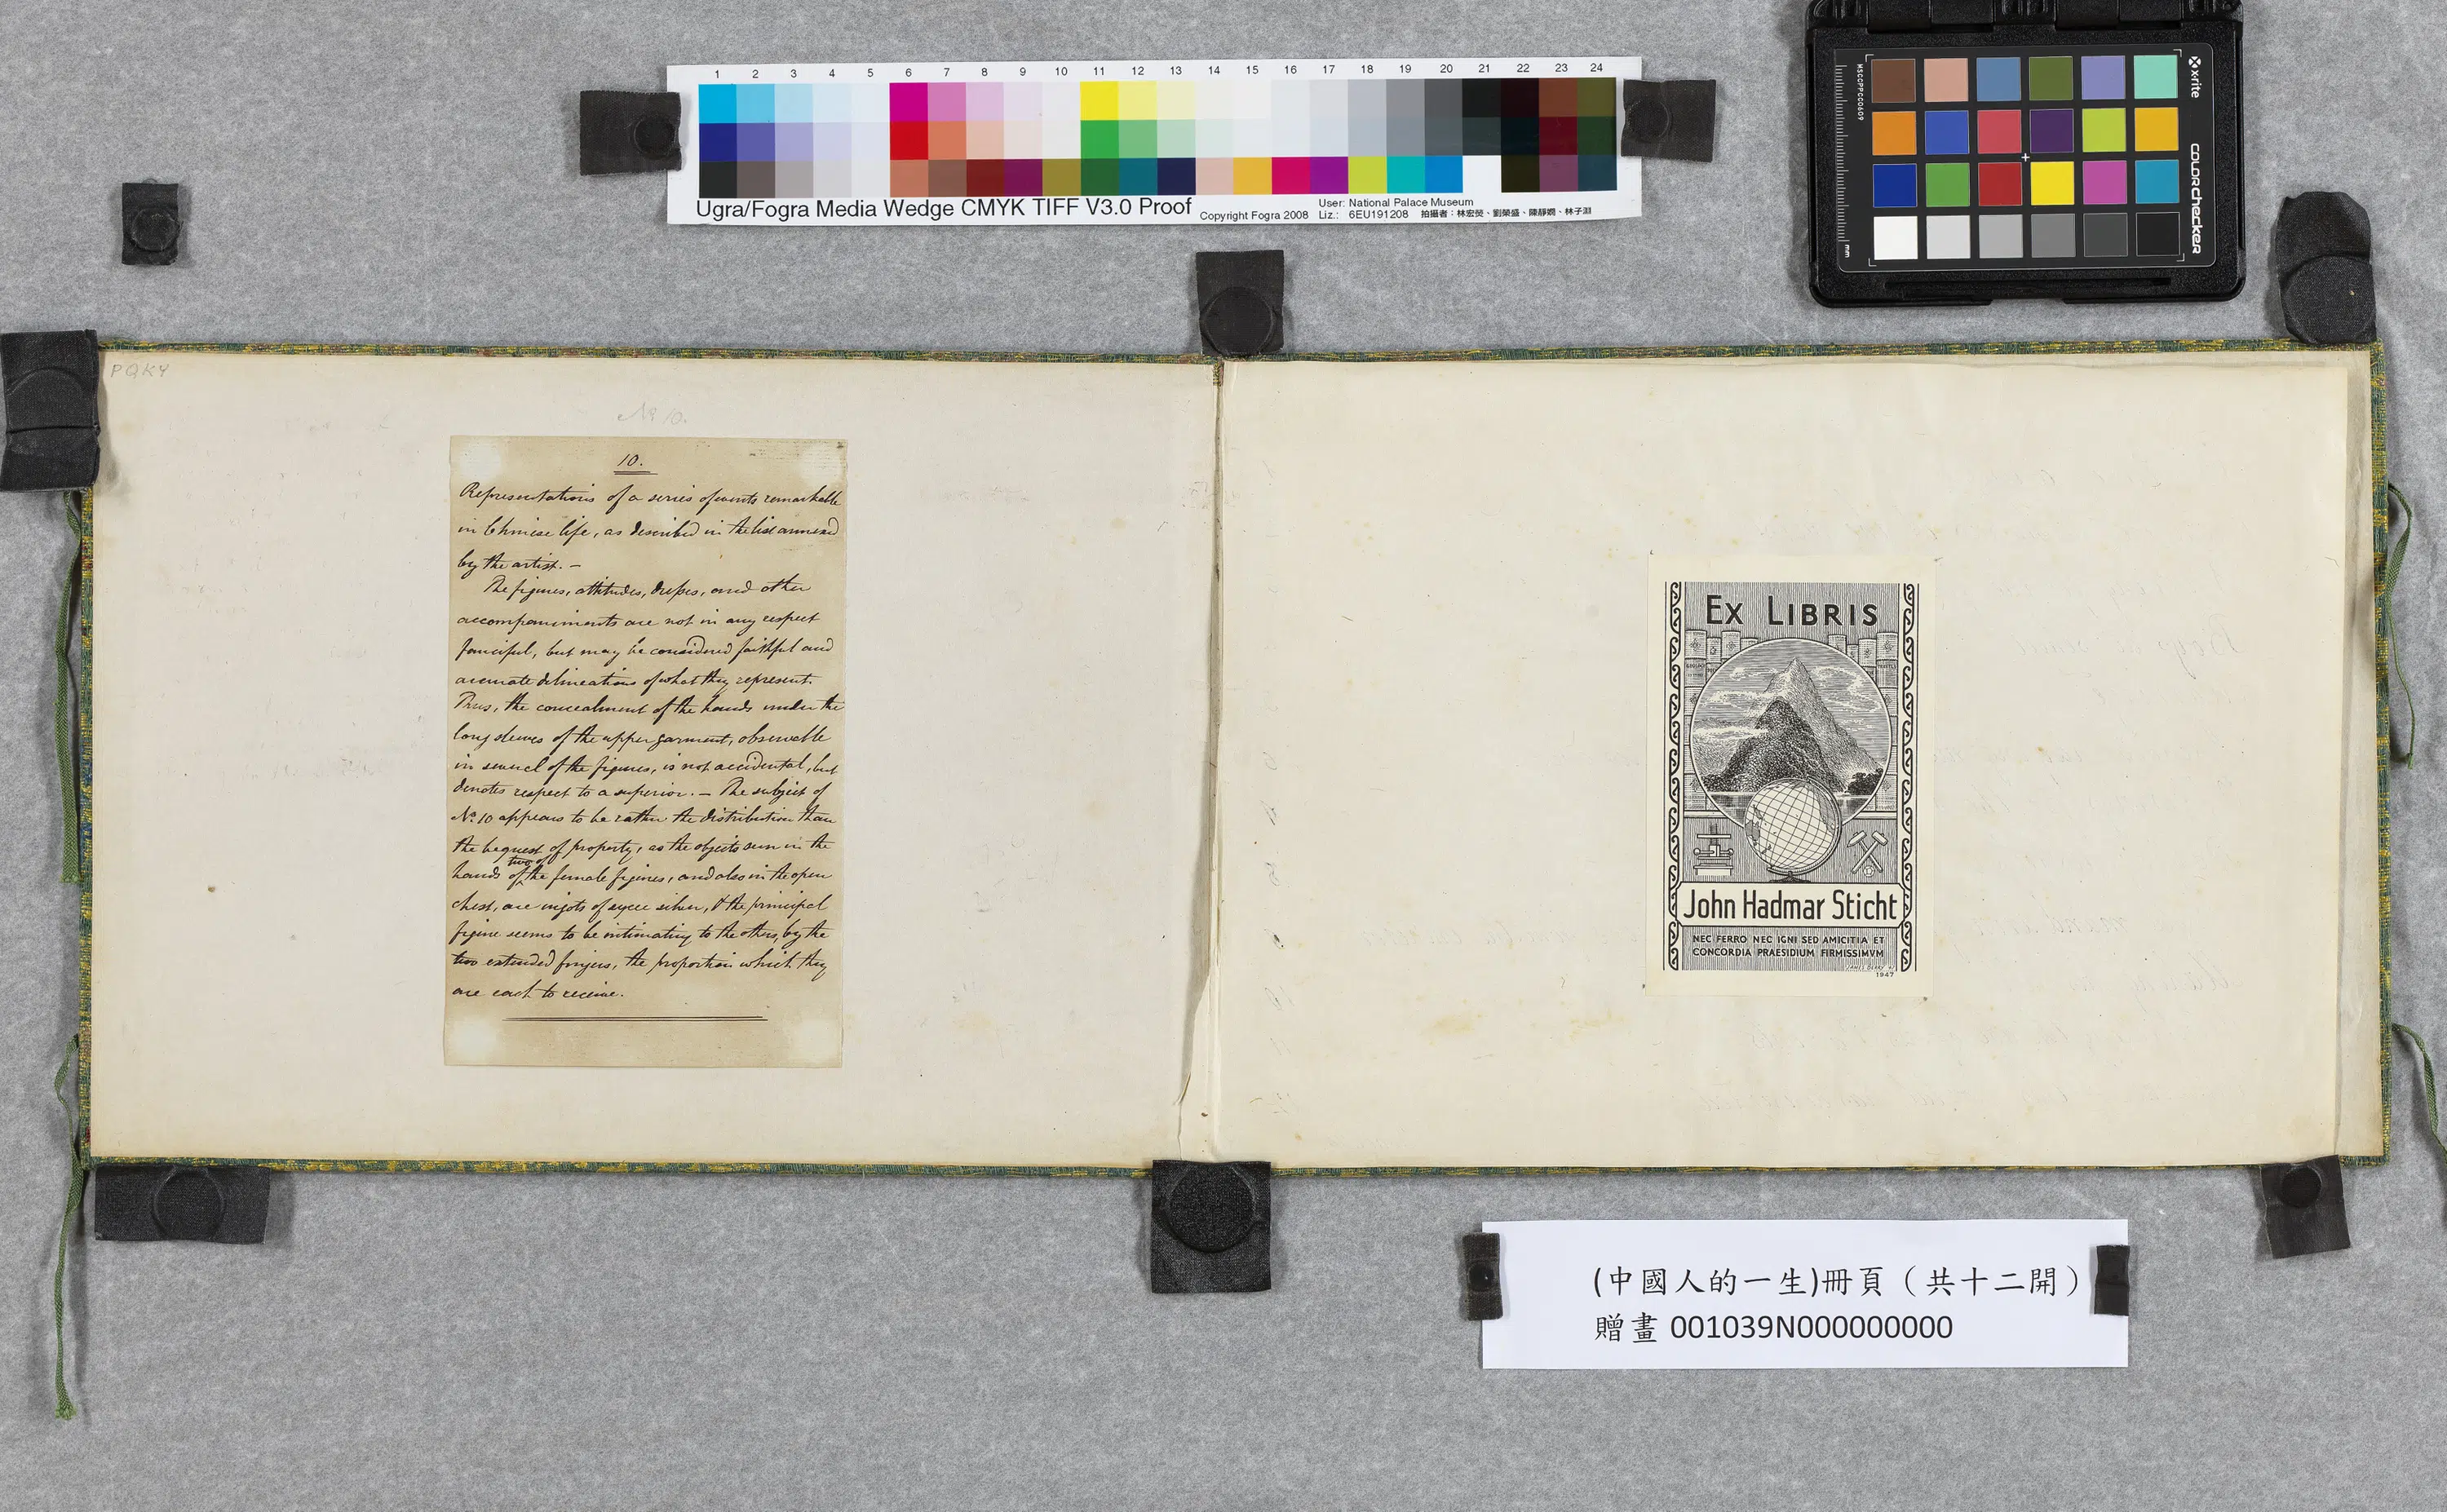 1 2 3 4 5 6 7 8 9 10 11 12 13 14 15 16 17 18 19 20 21 22 23 24
Ugra/Fogra Media Wedge CMYK TIFF V3.0 Proof
Copyright Fogra 2008
User: National Palace Museum
Liz.: 6EU191208 拍攝者：林宏熒、劉榮盛、陳靜嫻、林子淵
MSCCPPCC0609
x-rite
colorchecker
mm
PQKY
No 10.
10.
Representations of a series of events remarkable
in Chinese life, as described in the list annexed
by the artist. —
The figures, attitudes, dresses, and other
accompaniments are not in any respect
fanciful, but may be considered faithful and
accurate delineations of what they represent.
Thus, the concealment of the hands under the
long sleeves of the upper garment, observable
in several of the figures, is not accidental, but
denotes respect to a superior. — The subject of
No. 10 appears to be rather the distribution than
the bequest of property, as the objects seen in the
hands of two of the female figures, and also in the open
chest, are ingots of sycee silver, & the principal
figure seems to be intimating to the others, by the
two extended fingers, the proportion which they
are each to receive.
EX LIBRIS
John Hadmar Sticht
NEC FERRO NEC IGNI SED AMICITIA ET
CONCORDIA PRAESIDIUM FIRMISSIMVM
1947
(中國人的一生)冊頁（共十二開）
贈畫 001039N000000000